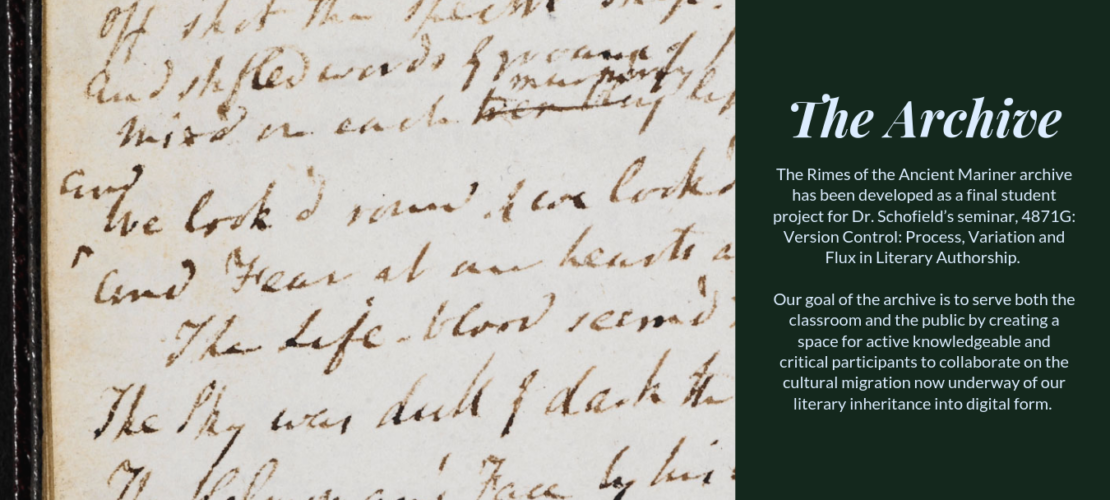 off shot the spectre ship.
And stifled words & groans of
murmuring
mix'd on each
and
We look'd round & we look'd
and Fear at our hearts a
The Life-blood seem'd
The Sky was dull & dark the
Face by his
The Archive
The Rimes of the Ancient Mariner archive
has been developed as a final student
project for Dr. Schofield's seminar, 4871G:
Version Control: Process, Variation and
Flux in Literary Authorship.
Our goal of the archive is to serve both the
classroom and the public by creating a
space for active knowledgeable and
critical participants to collaborate on the
cultural migration now underway of our
literary inheritance into digital form.